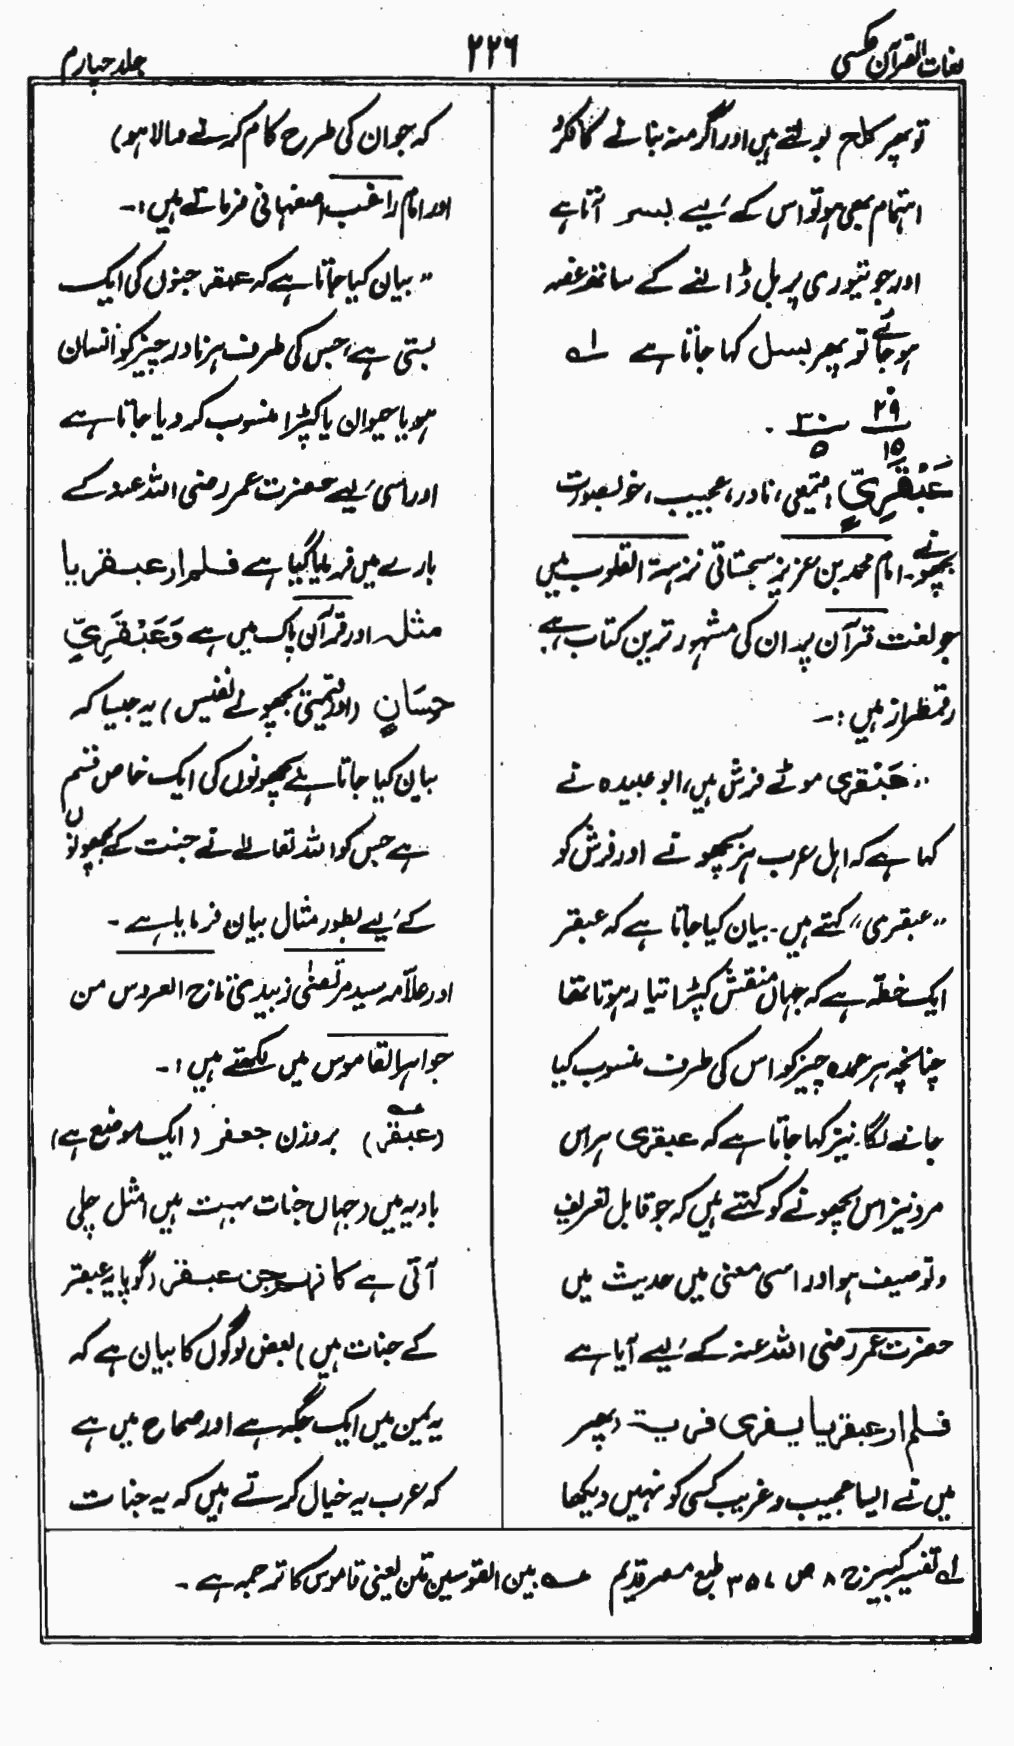 لغات القرآن عکسی
۲۲۶
جلد چہارم
تو پھر کلح بولتے ہیں اور اگر منہ بنانے کا فکر و
اہتمام بھی ہو تو اس کے لیے بسر آتا ہے
اور جو تیوری پر بل ڈالنے کے ساتھ غصہ
ہو جائے تو پھر بسل کہا جاتا ہے لہ
۲۹/۱۵ ۳۰/۵ .
عَبْقَرِيٍّ: قیمتی، نادر، عجیب، خوبصورت
بچھونے۔ امام محمد بن عزیز سجستانی نزہۃ القلوب میں
جو لغت قرآن پر ان کی مشہور ترین کتاب ہے
رقمطراز ہیں :۔
"عَبْقری موٹے فرش ہیں، ابو عبیدہ نے
کہا ہے کہ اہل عرب ہر بچھونے اور فرش کو
"عبقری" کہتے ہیں۔ بیان کیا جاتا ہے کہ عبقر
ایک خطّہ ہے کہ جہاں منقش کپڑا تیار ہوتا تھا
چنانچہ ہر عمدہ چیز کو اس کی طرف منسوب کیا
جانے لگا۔ نیز کہا جاتا ہے کہ عبقری ہر اس
مرد نیز اس بچھونے کو کہتے ہیں کہ جو قابل تعریف
و توصیف ہو اور اسی معنی میں حدیث میں
حضرت عمر رضی اللہ عنہ کے لیے آیا ہے
فلم ار عبقریا یفری فریہ (پھر
میں نے ایسا عجیب و غریب کسی کو نہیں دیکھا
کہ جو ان کی طرح کام کرنے والا ہو)
اور امام راغب اصفہانی فرماتے ہیں :۔
"بیان کیا جاتا ہے کہ عبقر جنوں کی ایک
بستی ہے، جس کی طرف ہر نادر چیز کو انسان
ہو یا حیوان یا کپڑا منسوب کر دیا جاتا ہے
اور اسی لیے حضرت عمر رضی اللہ عنہ کے
بارے میں فرمایا گیا ہے فلم ار عبقریا
مثلہ اور قرآن پاک میں ہے وَعَبْقَرِيٍّ
حِسَانٍ (اور قیمتی بچھونے نفیس) یہ جیسا کہ
بیان کیا جاتا ہے بچھونوں کی ایک خاص قسم
ہے جس کو اللہ تعالےٰ نے جنت کے بچھونوں
کے لیے بطور مثال بیان فرمایا ہے۔
اور علّامہ سید مرتضیٰ زبیدی تاج العروس من
جواہر القاموس میں لکھتے ہیں :۔
(عبقر) بروزن جعفر (ایک موضع ہے)
بادیہ میں (جہاں جنات بہت ہیں) مثل چلی
آتی ہے کانہم جن عبقر (گویا یہ عبقر
کے جنات ہیں) بعض لوگوں کا بیان ہے کہ
یہ یمن میں ایک جگہ ہے اور صحاح میں ہے
کہ عرب یہ خیال کرتے ہیں کہ یہ جنات
لہ تفسیر کبیر ج ۸ ص ۳۵۷ طبع مصر قدیم ۲ہ بین القوسین متن یعنی قاموس کا ترجمہ ہے۔